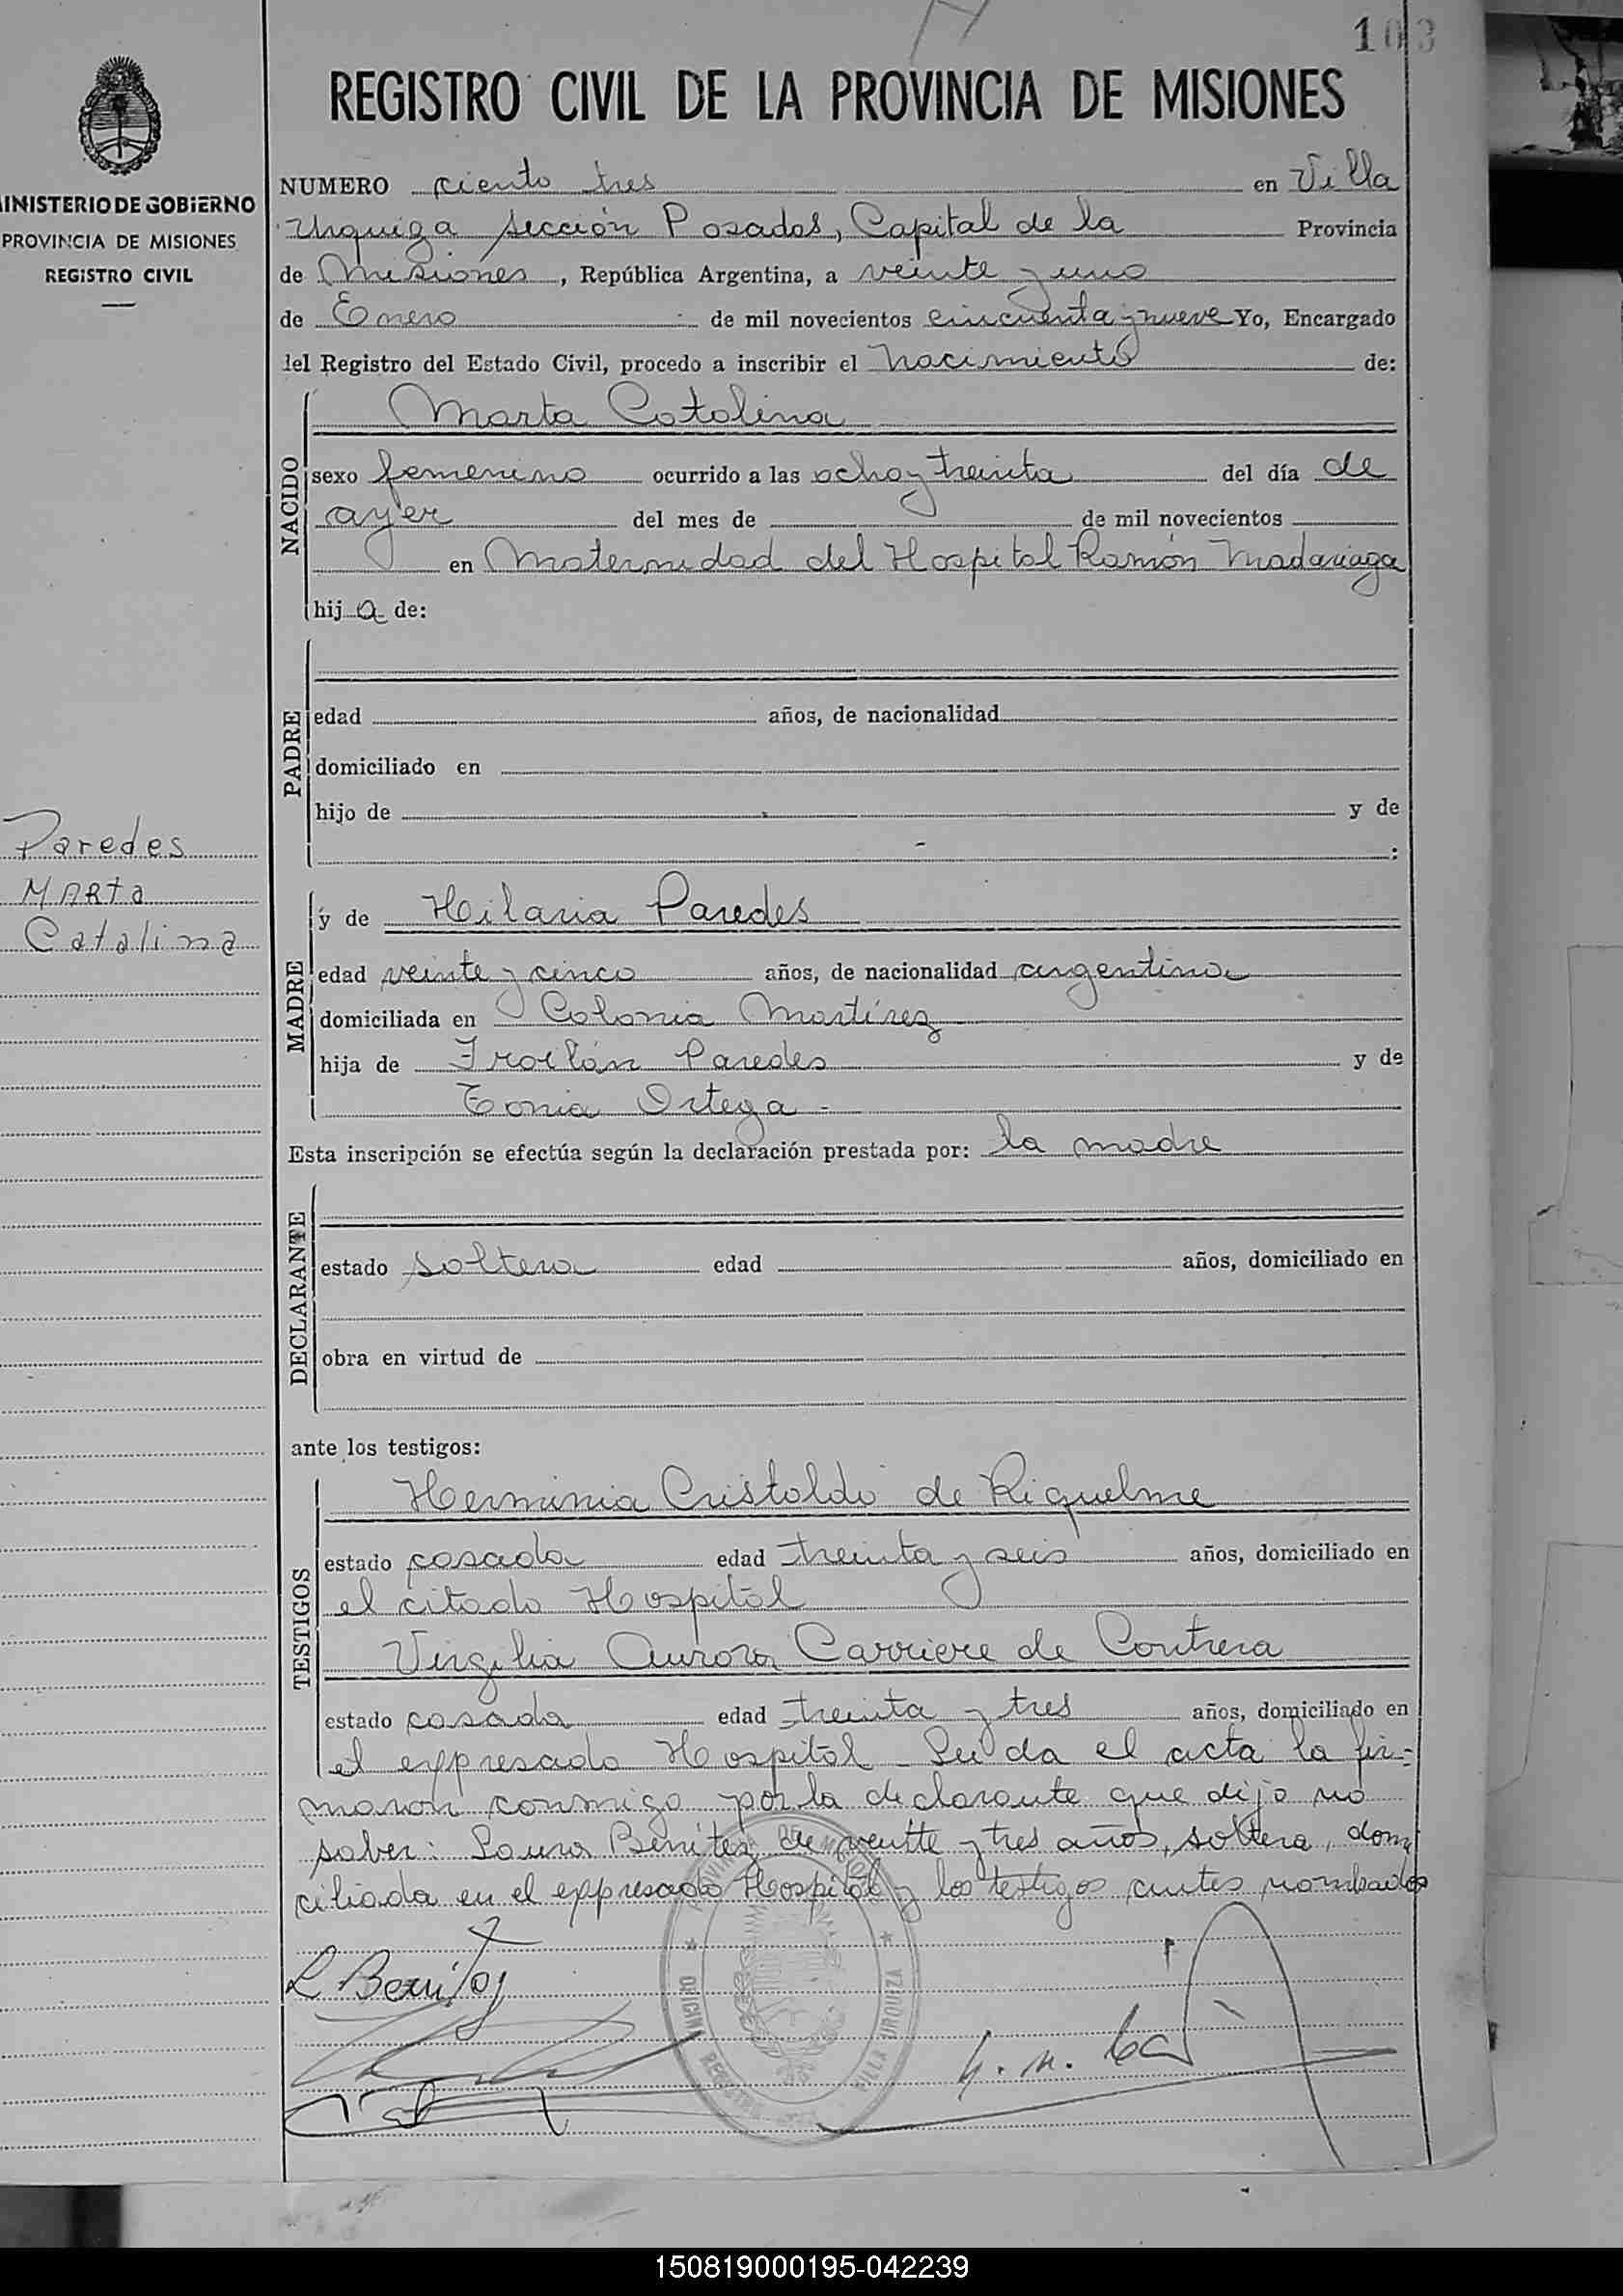 103
REGISTRO CIVIL DE LA PROVINCIA DE MISIONES
MINISTERIO DE GOBIERNO
PROVINCIA DE MISIONES
REGISTRO CIVIL
NUMERO ciento tres en Villa
Urquiza sección Posadas, Capital de la Provincia
de Misiones, República Argentina, a veinte y uno
de Enero de mil novecientos cincuenta y nueve Yo, Encargado
del Registro del Estado Civil, procedo a inscribir el nacimiento de:
NACIDO
Marta Catalina
sexo femenino ocurrido a las ocho y treinta del día de
ayer del mes de de mil novecientos
en Maternidad del Hospital Ramón Madariaga
hija de:
PADRE
edad años, de nacionalidad
domiciliado en
hijo de y de
:
Paredes
MARTA
Catalina
MADRE
y de Hilaria Paredes
edad veinte y cinco años, de nacionalidad argentina
domiciliada en Colonia Martírez
hija de Froilán Paredes y de
Tonia Ortega -
Esta inscripción se efectúa según la declaración prestada por: la madre
DECLARANTE
estado soltera edad años, domiciliado en
obra en virtud de
ante los testigos:
TESTIGOS
Herminia Cristoldo de Riquelme
estado casada edad treinta y seis años, domiciliado en
el citado Hospital
Virgilia Aurora Carriere de Contrera
estado casada edad treinta y tres años, domiciliado en
el expresado Hospital - Leída el acta la fir-
maron conmigo por la declarante que dijo no
saber: Laura Benítez de veinte y tres años, soltera, domi
ciliada en el expresado Hospital y los testigos antes nombrados
L Benitez
OFICINA
VILLA URQUIZA
150819000195-042239